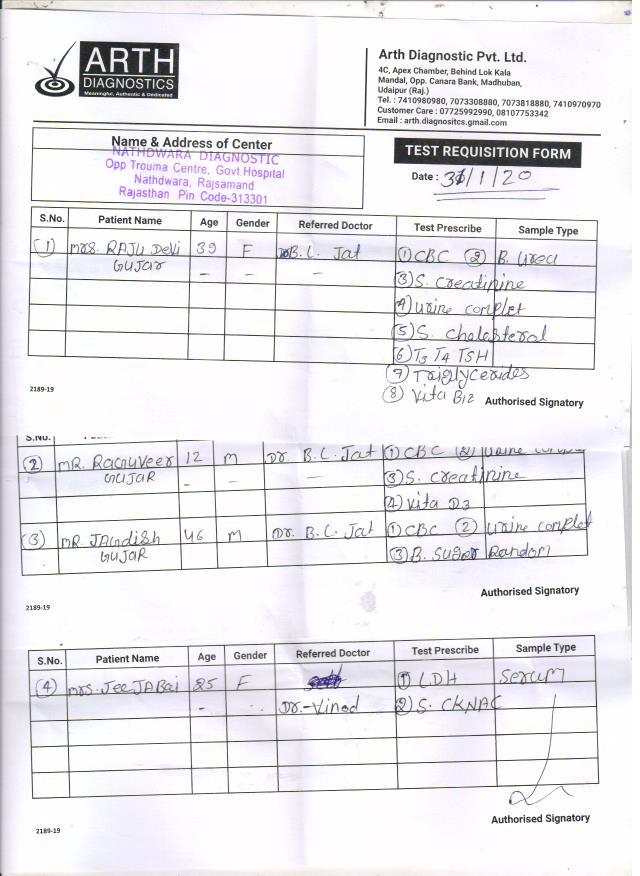 ARTH
DIAGNOSTICS
Meaningful, Authentic & Dedicated
Arth Diagnostic Pvt. Ltd.
4C, Apex Chamber, Behind Lok Kala
Mandal, Opp. Canara Bank, Madhuban,
Udaipur (Raj.)
Tel. : 7410980980, 7073308880, 7073818880, 7410970970
Customer Care : 07725992990, 08107753342
Email : arth.diagnositcs.gmail.com
Name & Address of Center
NATHDWARA DIAGNOSTIC
Opp Trouma Centre, Govt.Hospital
Nathdwara, Rajsamand
Rajasthan Pin Code-313301
TEST REQUISITION FORM
Date : 31/1/20
S.No. Patient Name Age Gender Referred Doctor Test Prescribe Sample Type
(1) Mrs. RAJU Devi 39 F Dr B.L. Jat (1) CBC (2) B. Urea
GUJAR - - - (3) S. creatinine
(4) urine complet
(5) S. cholesteral
(6) T3 T4 TSH
(7) Triglycerides
(8) Vita B12
2189-19 Authorised Signatory
S.No.
(2) MR. Raguveer 12 M Dr. B.L. Jat (1) CBC (2) urine
GUJAR - - - (3) S. creatinine
(4) Vita D3
(3) MR. JAgdish 46 M Dr. B.L. Jat (1) CBC (2) urine complet
GUJAR (3) B. suger Random
Authorised Signatory
2189-19
S.No. Patient Name Age Gender Referred Doctor Test Prescribe Sample Type
(4) Mrs. JeeJABai 25 F (1) LDH Serum
- Dr.-Vinod (2) S. CKNAC
Authorised Signatory
2189-19